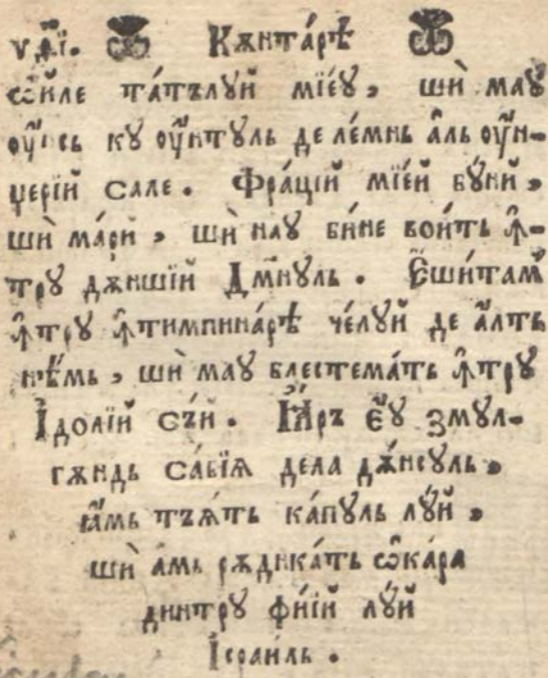 Кѫнта́рѣ
ѡ҆́иле та́тълꙋй мїе́ꙋ, шѝ маꙋ҆
ᲂу҆́нсь кꙋ ᲂу҆нтꙋль де ле́мнь а҆̀ль ᲂу҆н-
џерїй сале. Фра́цїй мїе́й бꙋ́ни,
шѝ ма́ри, шѝ наꙋ би́не вои́ть ꙟ҆-
трꙋ дѫншїй Дм҃нꙋль. Е҆шѝтам
ꙟ҆трꙋ ꙟ҆тимпина́рѣ че́лꙋй де а҆́лть
нѣ́мь, шѝ маꙋ блестема́ть ꙟ҆трꙋ
І҆долїй съ́й. Ꙗ҆́ръ є҆́ꙋ змꙋл-
гѫндь са́бїѧ дела дѫ́нсꙋль,
ꙗ҆мь тъѧ́ть ка́пꙋль лꙋ́й,
шѝ а҆мь рѫдика́ть ѡ҆ка́ра
динтрꙋ фи́їй лꙋ́й
І҆сраи́ль.